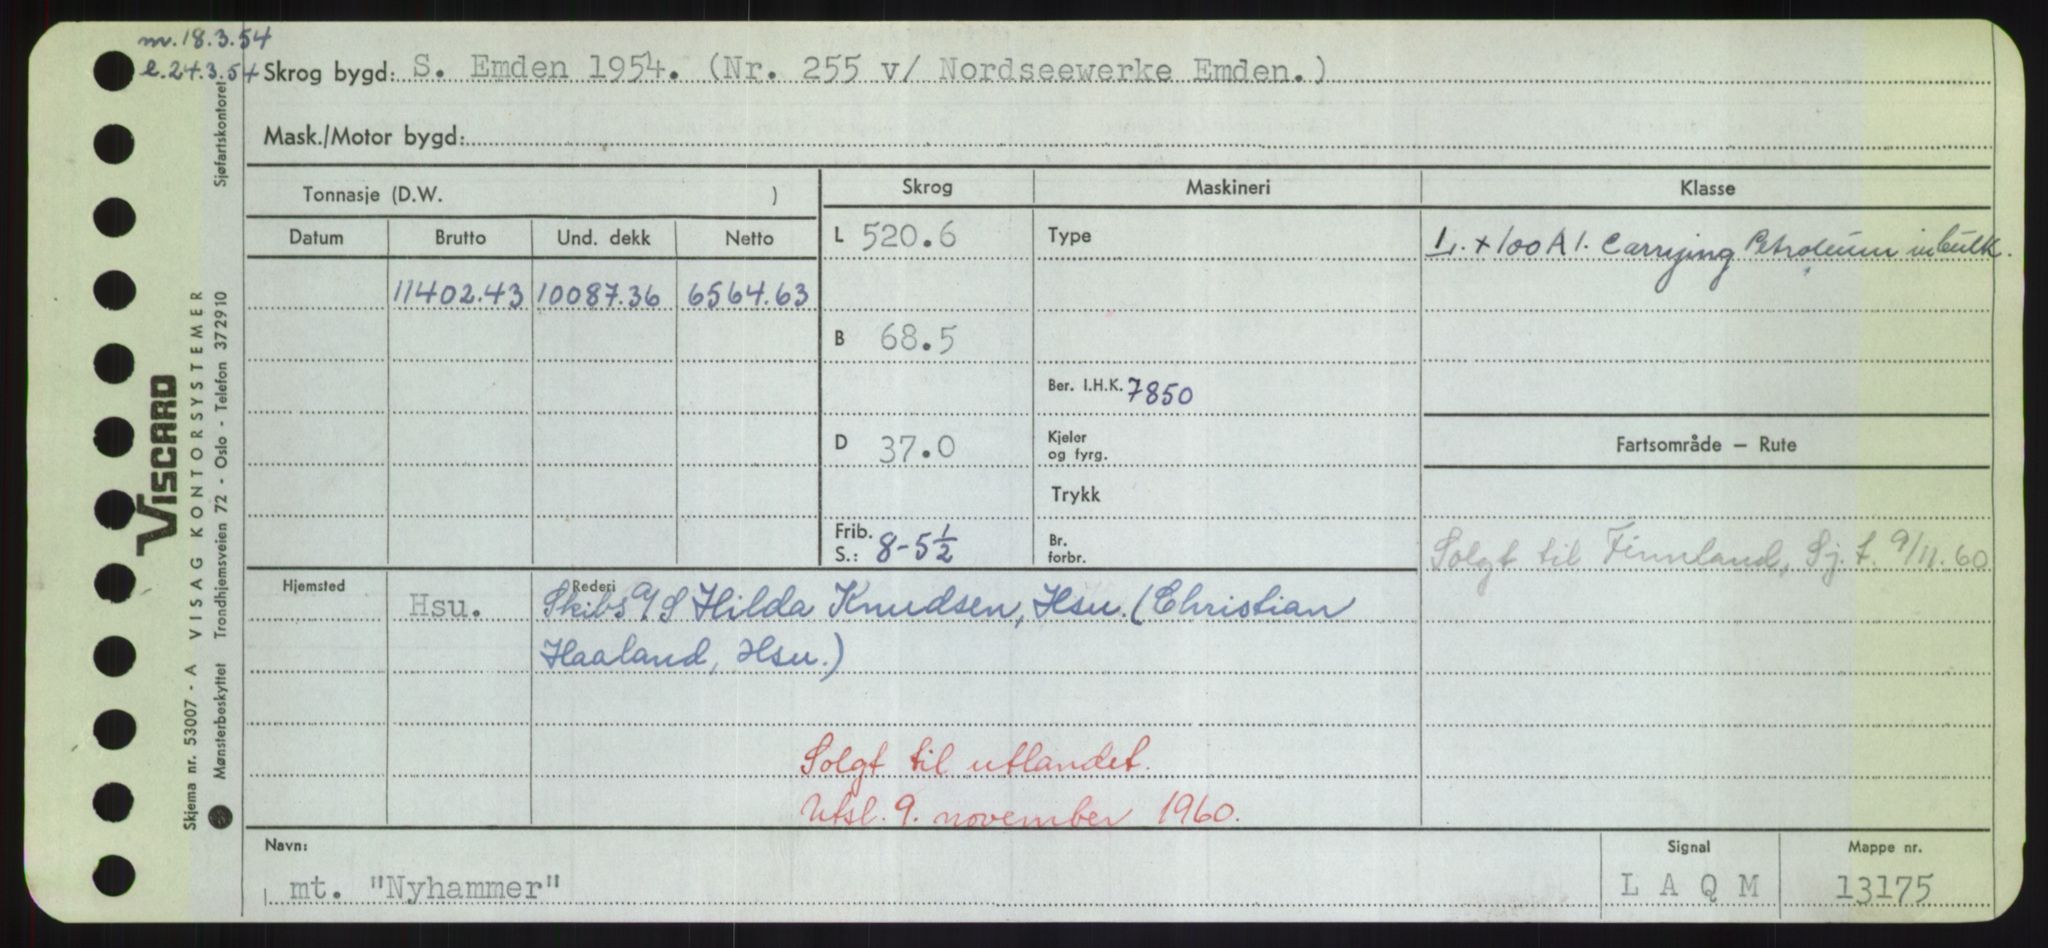 m. 18.3.54
e. 24.3.54
Skrog bygd: S. Emden 1954. (Nr. 255 v/ Nordseewerke Emden.)
Mask./Motor bygd:
Tonnasje (D.W. )
Skrog
Maskineri
Klasse
Datum Brutto Und. dekk Netto
L 520.6
Type
L. + 100 A 1. Carrying Petroleum in bulk.
11402.43 10087.36 6564.63
B 68.5
Ber. I.H.K. 7850
D 37.0
Kjeler
og fyrg.
Fartsområde — Rute
Trykk
Frib.
S.: 8-5½
Br.
forbr.
Solgt til Finnland, Sj. f. 9/11.60
Hjemsted
Hsu.
Rederi
Skibs a/S Hilda Knudsen, Hsu. (Christian
Haaland, Hsu.)
Solgt til utlandet.
Utsl. 9. november 1960.
Navn:
mt. "Nyhammer"
Signal
L A Q M
Mappe nr.
13175
VISCARD
Skjema nr. 53007 - A VISAG KONTORSYSTEMER
Mønsterbeskyttet Trondhjemsveien 72 - Oslo - Telefon 372910 Sjøfartskontoret